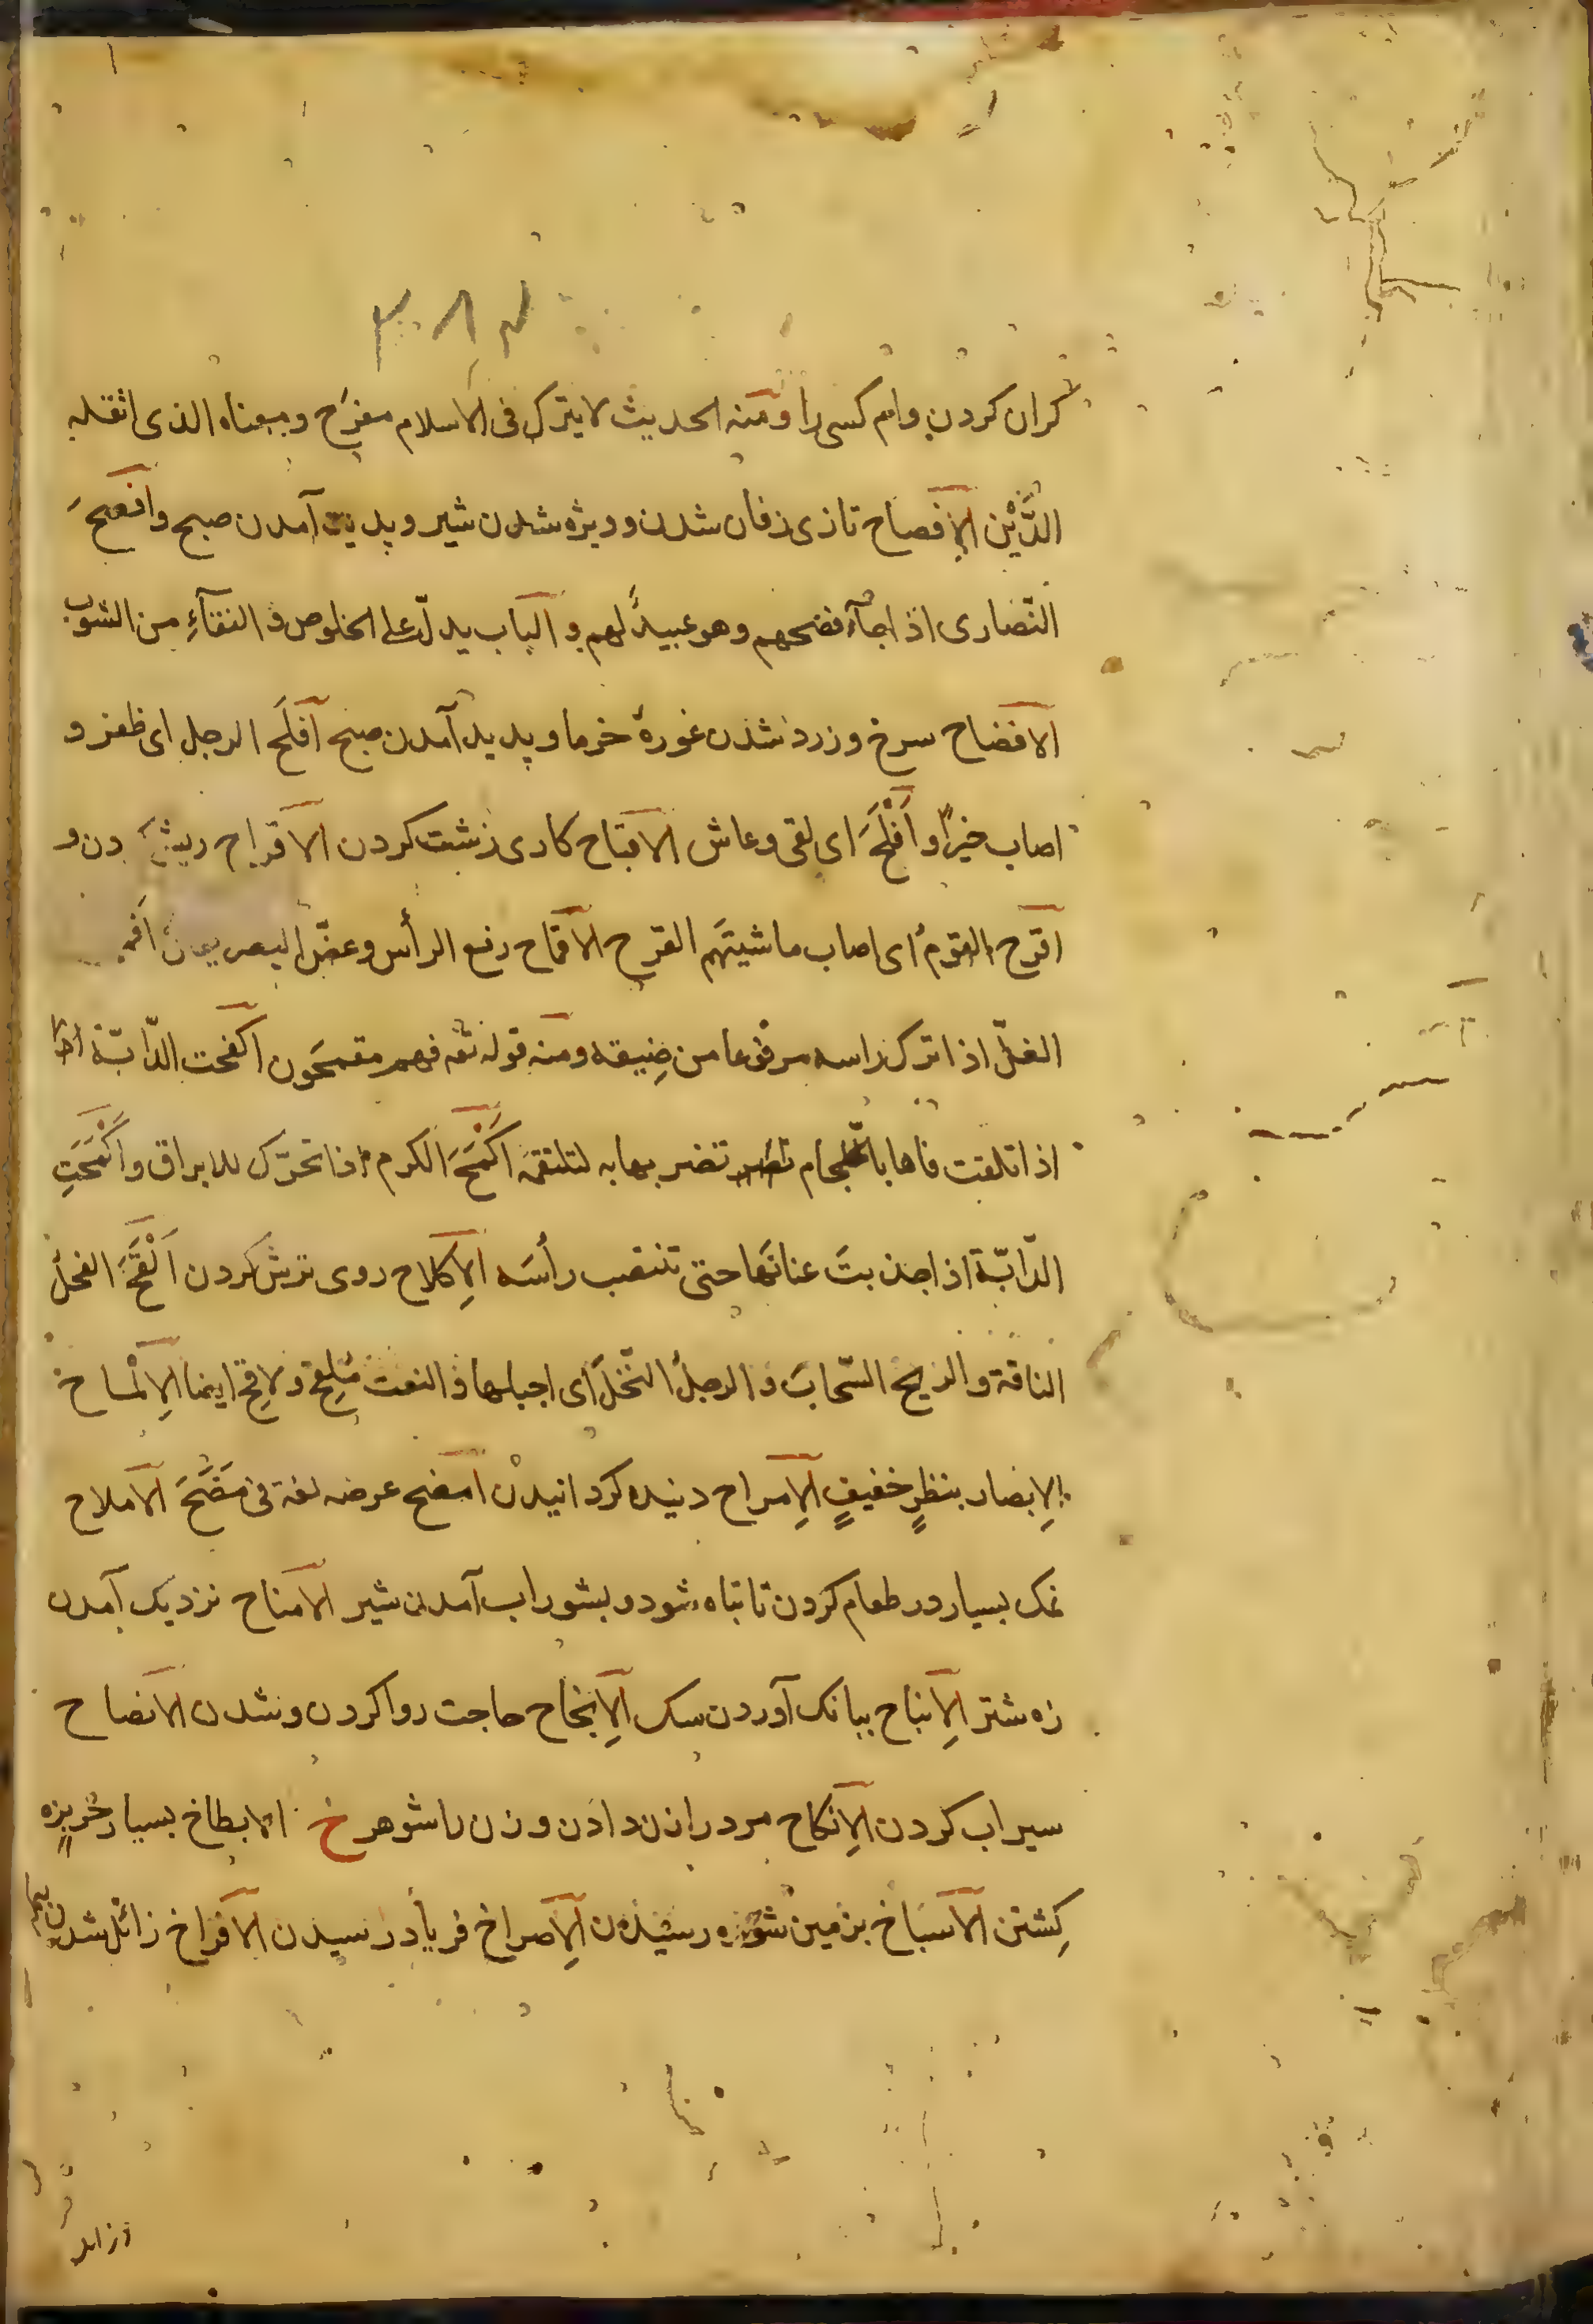 کران کردن وام کسی را ومنه الحدیث لا یترک فی الاسلام مفرَح ومعناه الذی اثقله
الدَّیْن الاِفصاح تازی زفان شدن و ویژه شدن شیر و پدید آمدن صبح وافصحَ
النّصاری اذا جآء فصحهم وهو عیدٌ لهم و الباب یدلّ علی الخلوص و النقآءِ من الشوب
الافضاح سرخ و زرد شدن غورهٔ خرما و پدید آمدن صبح اَفلَحَ الرجل ای ظفر و
اصاب خیرًا و اَفْلَحَ ای بقی وعاش الاقباح کاری زشت کردن الاقراح ریش دن و
اقرح القومُ ای اصاب ماشیتَهم القرح الاقماح رفع الرأس وغضّ البصر
الغلّ اذا ترک راسه مرفوعا من ضِیقه ومنه قوله تعه فهم مقمحَون اکفحت الدّابّة
اذا تلقت فاها باللّجام تضربها به لتلتقمَه اَکْمَحَ الکرم اذا تحرّک للایراق و اَکْمَحْتُ
الدّابّة اذا جذبتَ عنانَها حتی تنتصب رأسَه الاِکلاح روی ترش کردن اَلْقَحَ الفحلُ
الناقة والریحُ السّحابَ و الرجلُ النّخلَ ای احبلها و النعت مُلقِح و لاقِح ایضا الاِلْماح
الاِبصار بنظرٍ خفیفٍ الاِمراح دنیده کردانیدن امضح عرضه لغة فی مَضَحَ الاملاح
نمک بسیار در طعام کردن تا تباه شود و بشوراب آمدن شیر الامناح نزدیک آمدن
زه شتر الاِنباح ببانک آوردن سک الاِنجاح حاجت روا کردن و شدن الانضاح
سیراب کردن الاِنکاح مرد را زن دادن و زن را شوهر خ الابطاخ بسیار خربزه
کِشتن الاسباخ بزمین شوره رسیدن الاِصراخ فریاد رسیدن الافراخ زائل شدن بیم